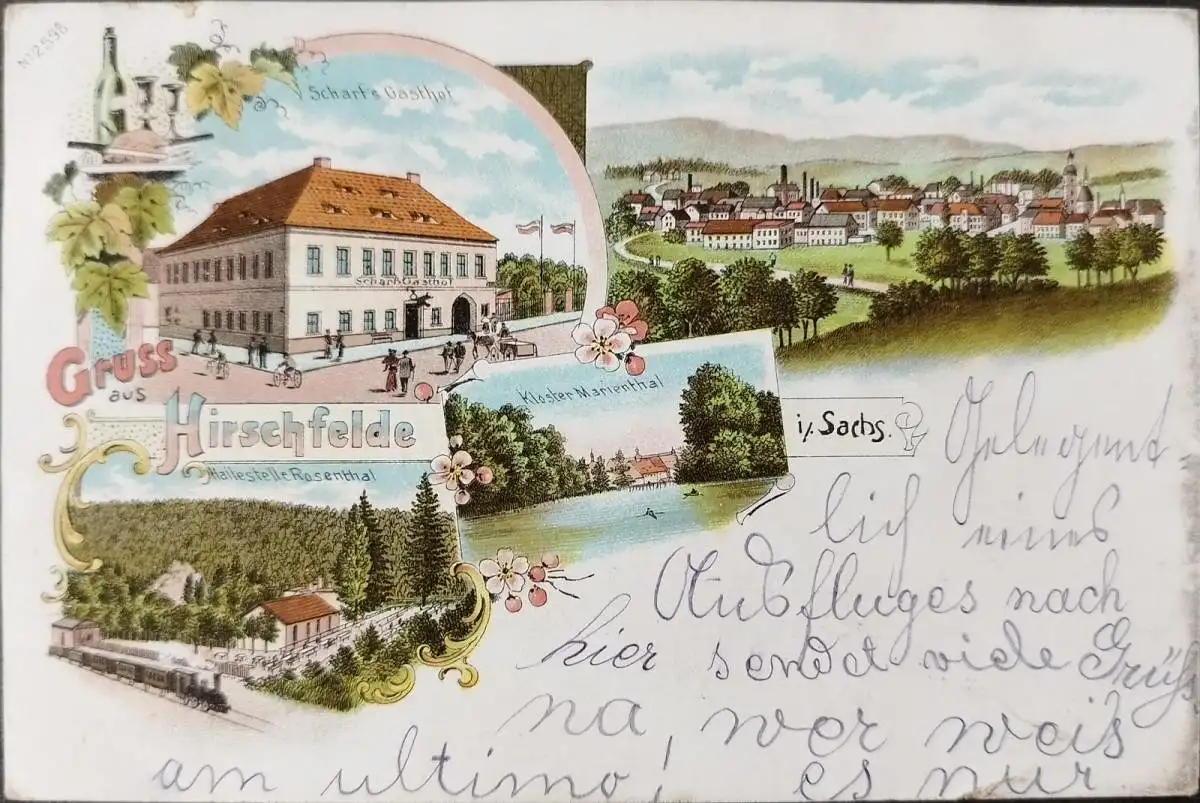 Nº 2598
Scharf's Gasthof
Scharf Gasthof
Gruss
aus
Hirschfelde
i/. Sachs.
Kloster Marienthal
Haltestelle Rosenthal
Gelegent
lich eines
Ausfluges nach
hier sendet viele Grüße
na, wer weis
am ultimo! es nur